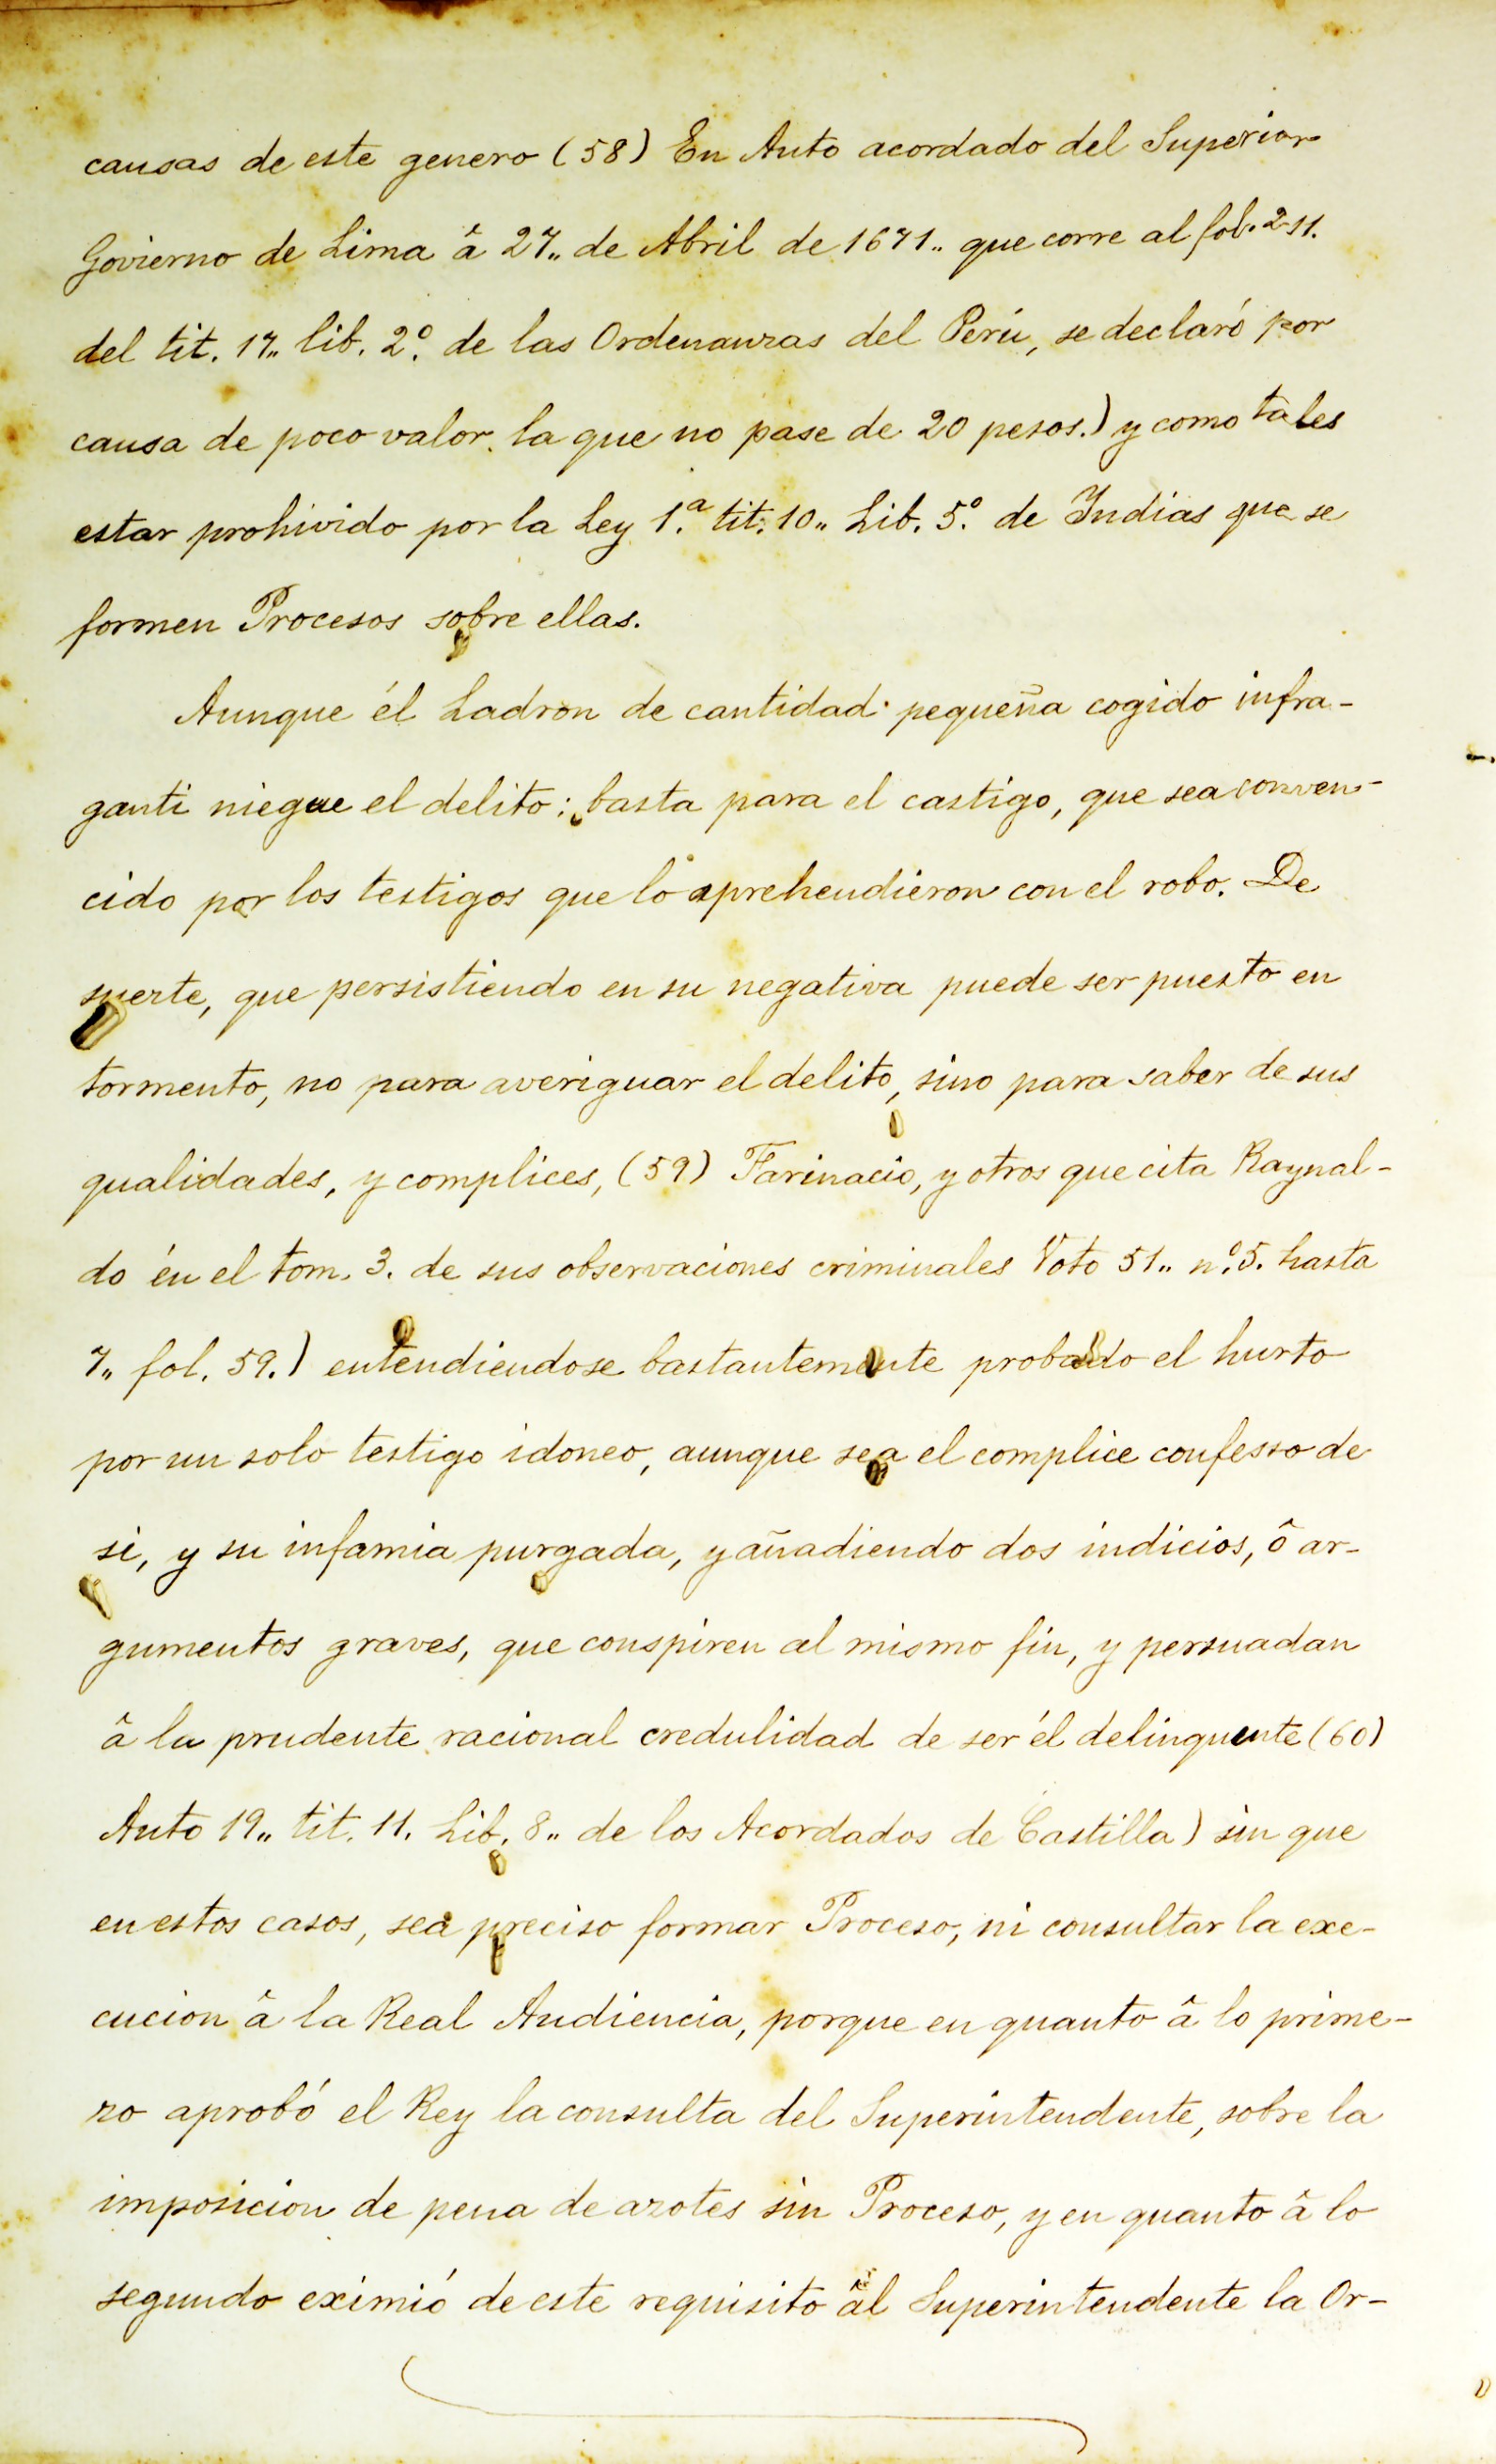 causas de este genero (58) En Auto acordado del Superior
Govierno de Lima â 27,, de Abril de 1671,, que corre al fol. 211.
del tit. 17,, lib. 2º. de las Ordenanzas del Perú, se declaró por
causa de poco valor, la que no pase de 20 pesos.) y como tales
estar prohivido por la Ley 1.ª tit. 10,, Lib. 5º. de Indias que se
formen Procesos sobre ellas.
Aunque él Ladron de cantidad pequeña cogido infra-
ganti niegue el delito; basta para el castigo, que sea conven-
cido por los testigos que lo aprehendieron con el robo. De
suerte, que persistiendo en su negativa puede ser puesto en
tormento, no para averiguar el delito, sino para saber de sus
qualidades, y complices, (59) Farinacio, y otros que cita Raynal-
do én el tom. 3. de sus observaciones criminales Voto 51,, nº. 5. hasta
7,, fol. 59.) entendiendose bastantemente probado el hurto
por un solo testigo idoneo, aunque sea el complice confesso de
si, y su infamia purgada, y añadiendo dos indicios, ô ar-
gumentos graves, que conspiren al mismo fin, y persuadan
â la prudente racional credulidad de ser él delinquente (60)
Auto 19,, tit. 11. Lib. 8,, de los Acordados de Castilla) sin que
en estos casos, sea preciso formar Proceso, ni consultar la exe-
cucion â la Real Audiencia, porque en quanto â lo prime-
ro aprobó el Rey la consulta del Superintendente, sobre la
imposicion de pena de azotes sin Proceso, y en quanto â lo
segundo eximió de este requisito âl Superintendente la Or-